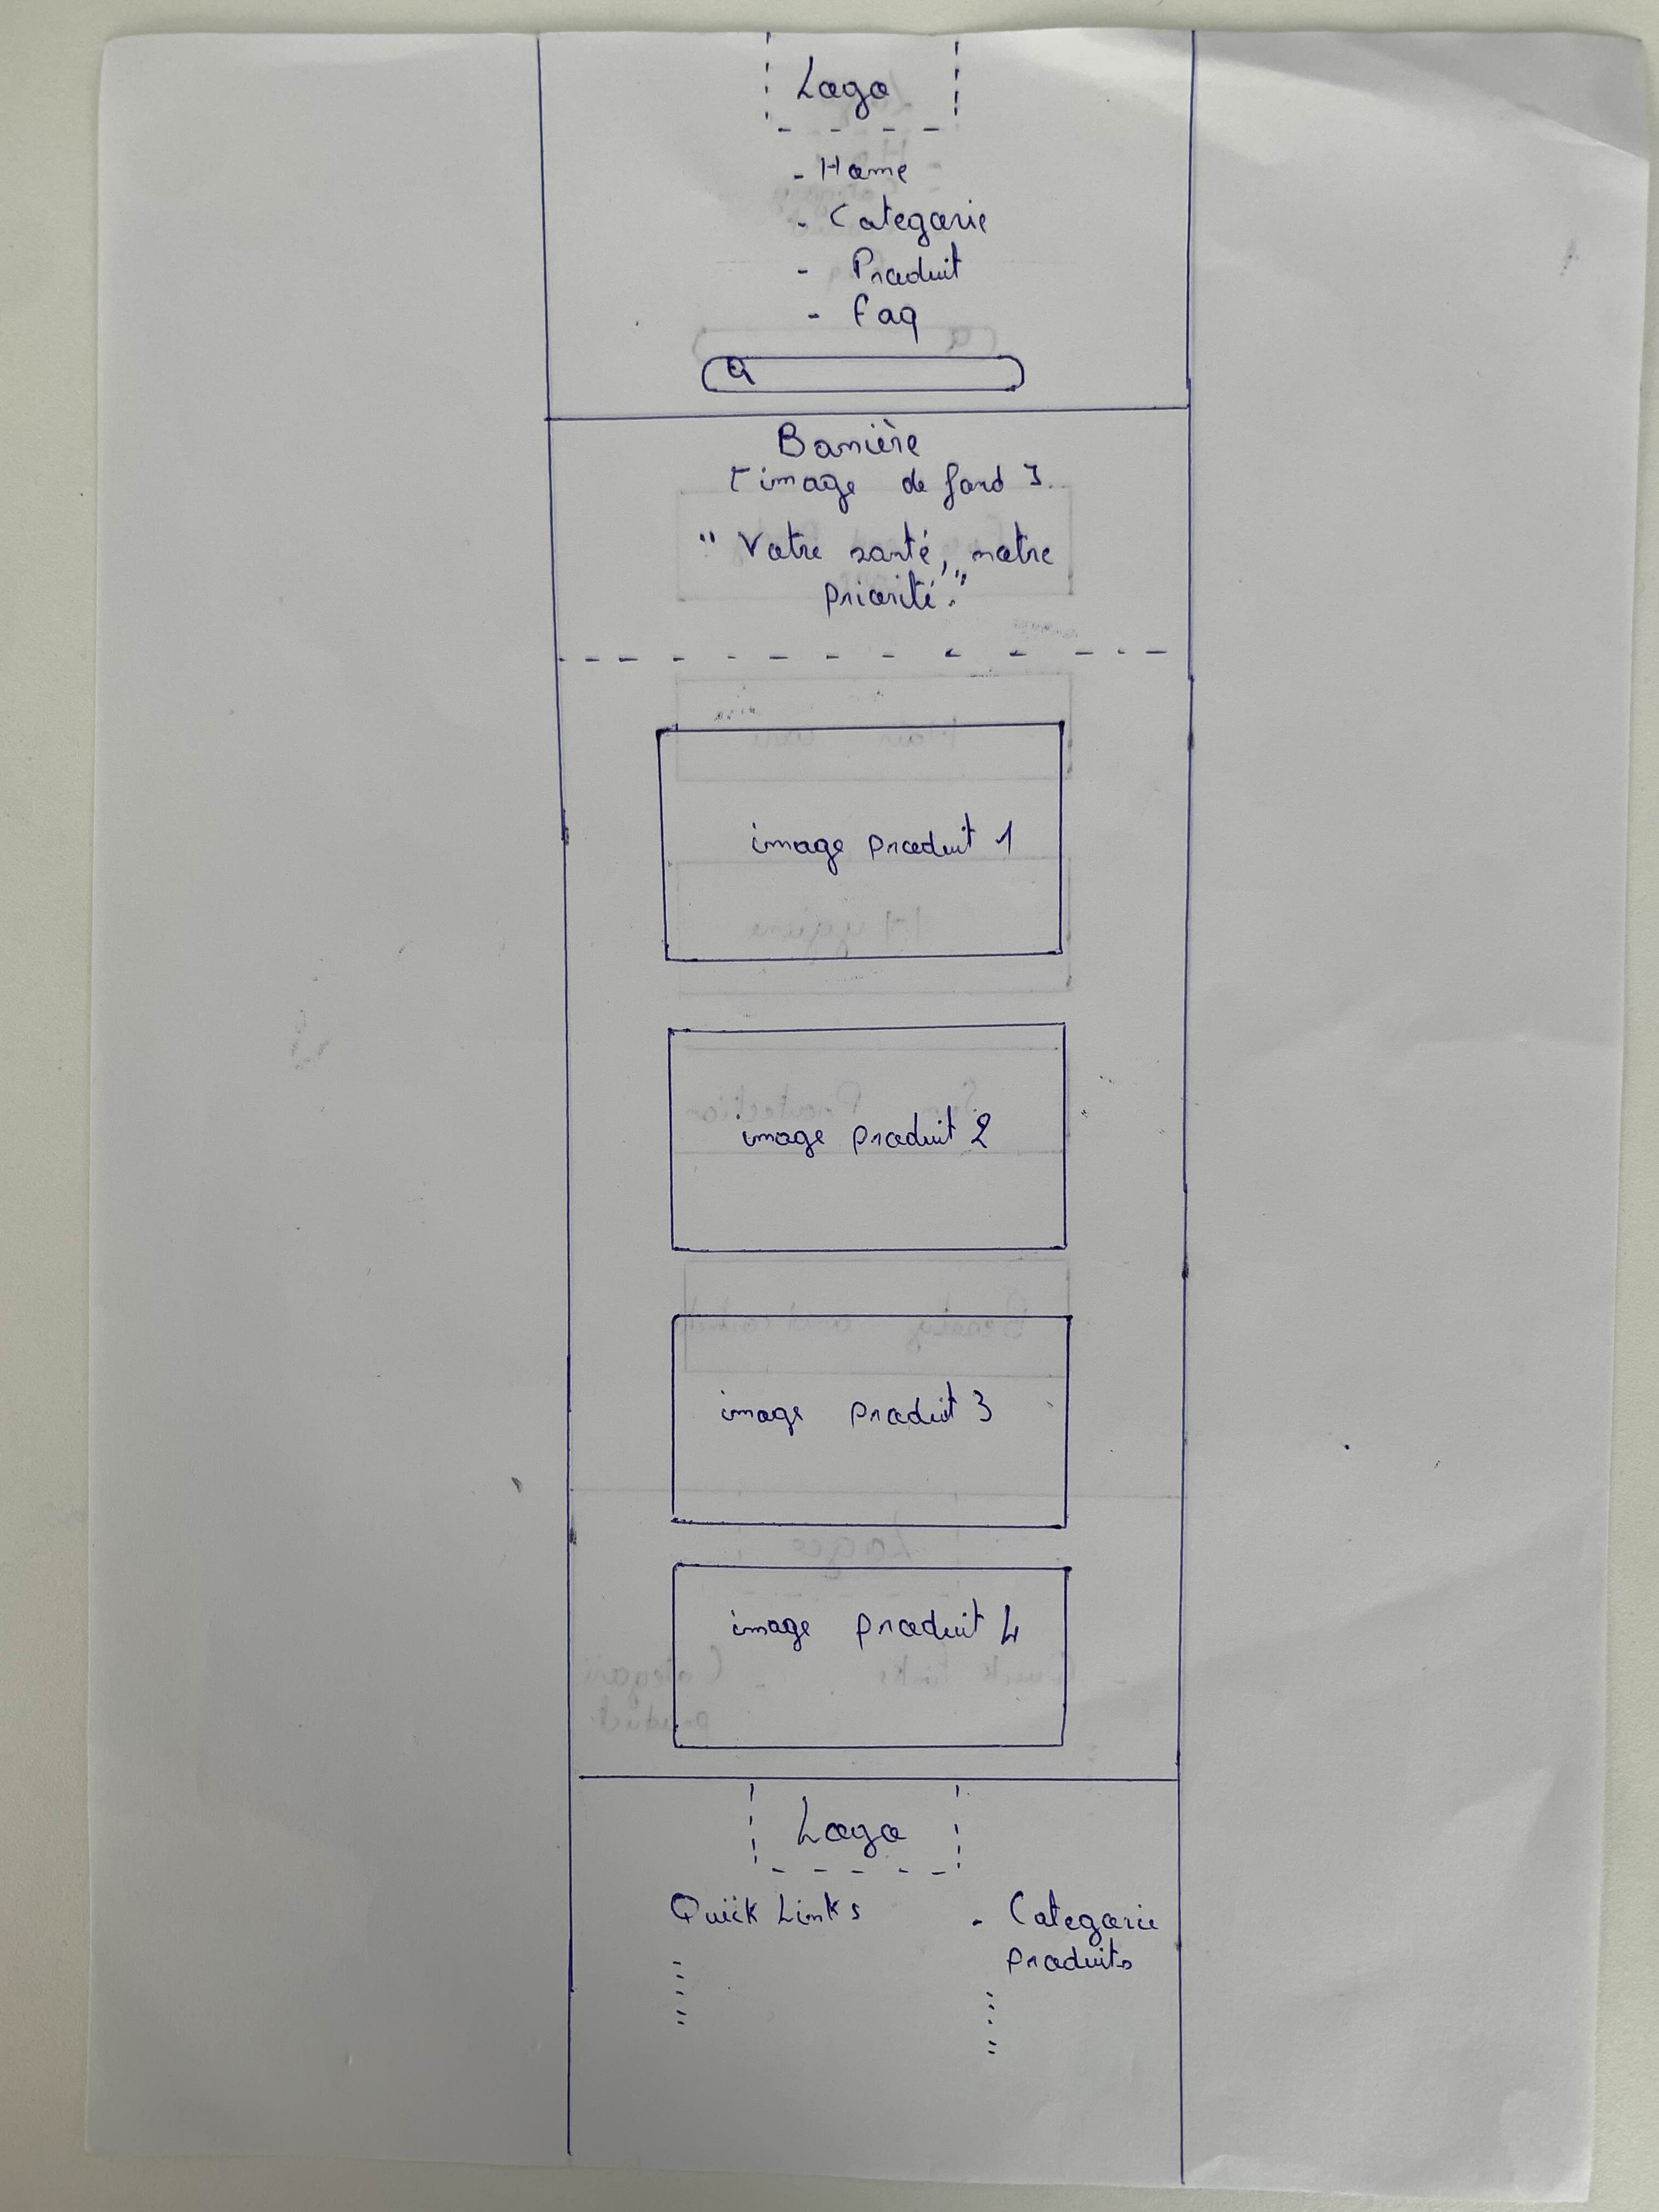 Logo
- Home
- Categorie
- Produit
- Faq
Banière
[image de fond].
" Votre santé, notre
priorité."
image produit 1
image produit 2
image produit 3
image produit 4
Logo
Quick Links
- Categorie
produits